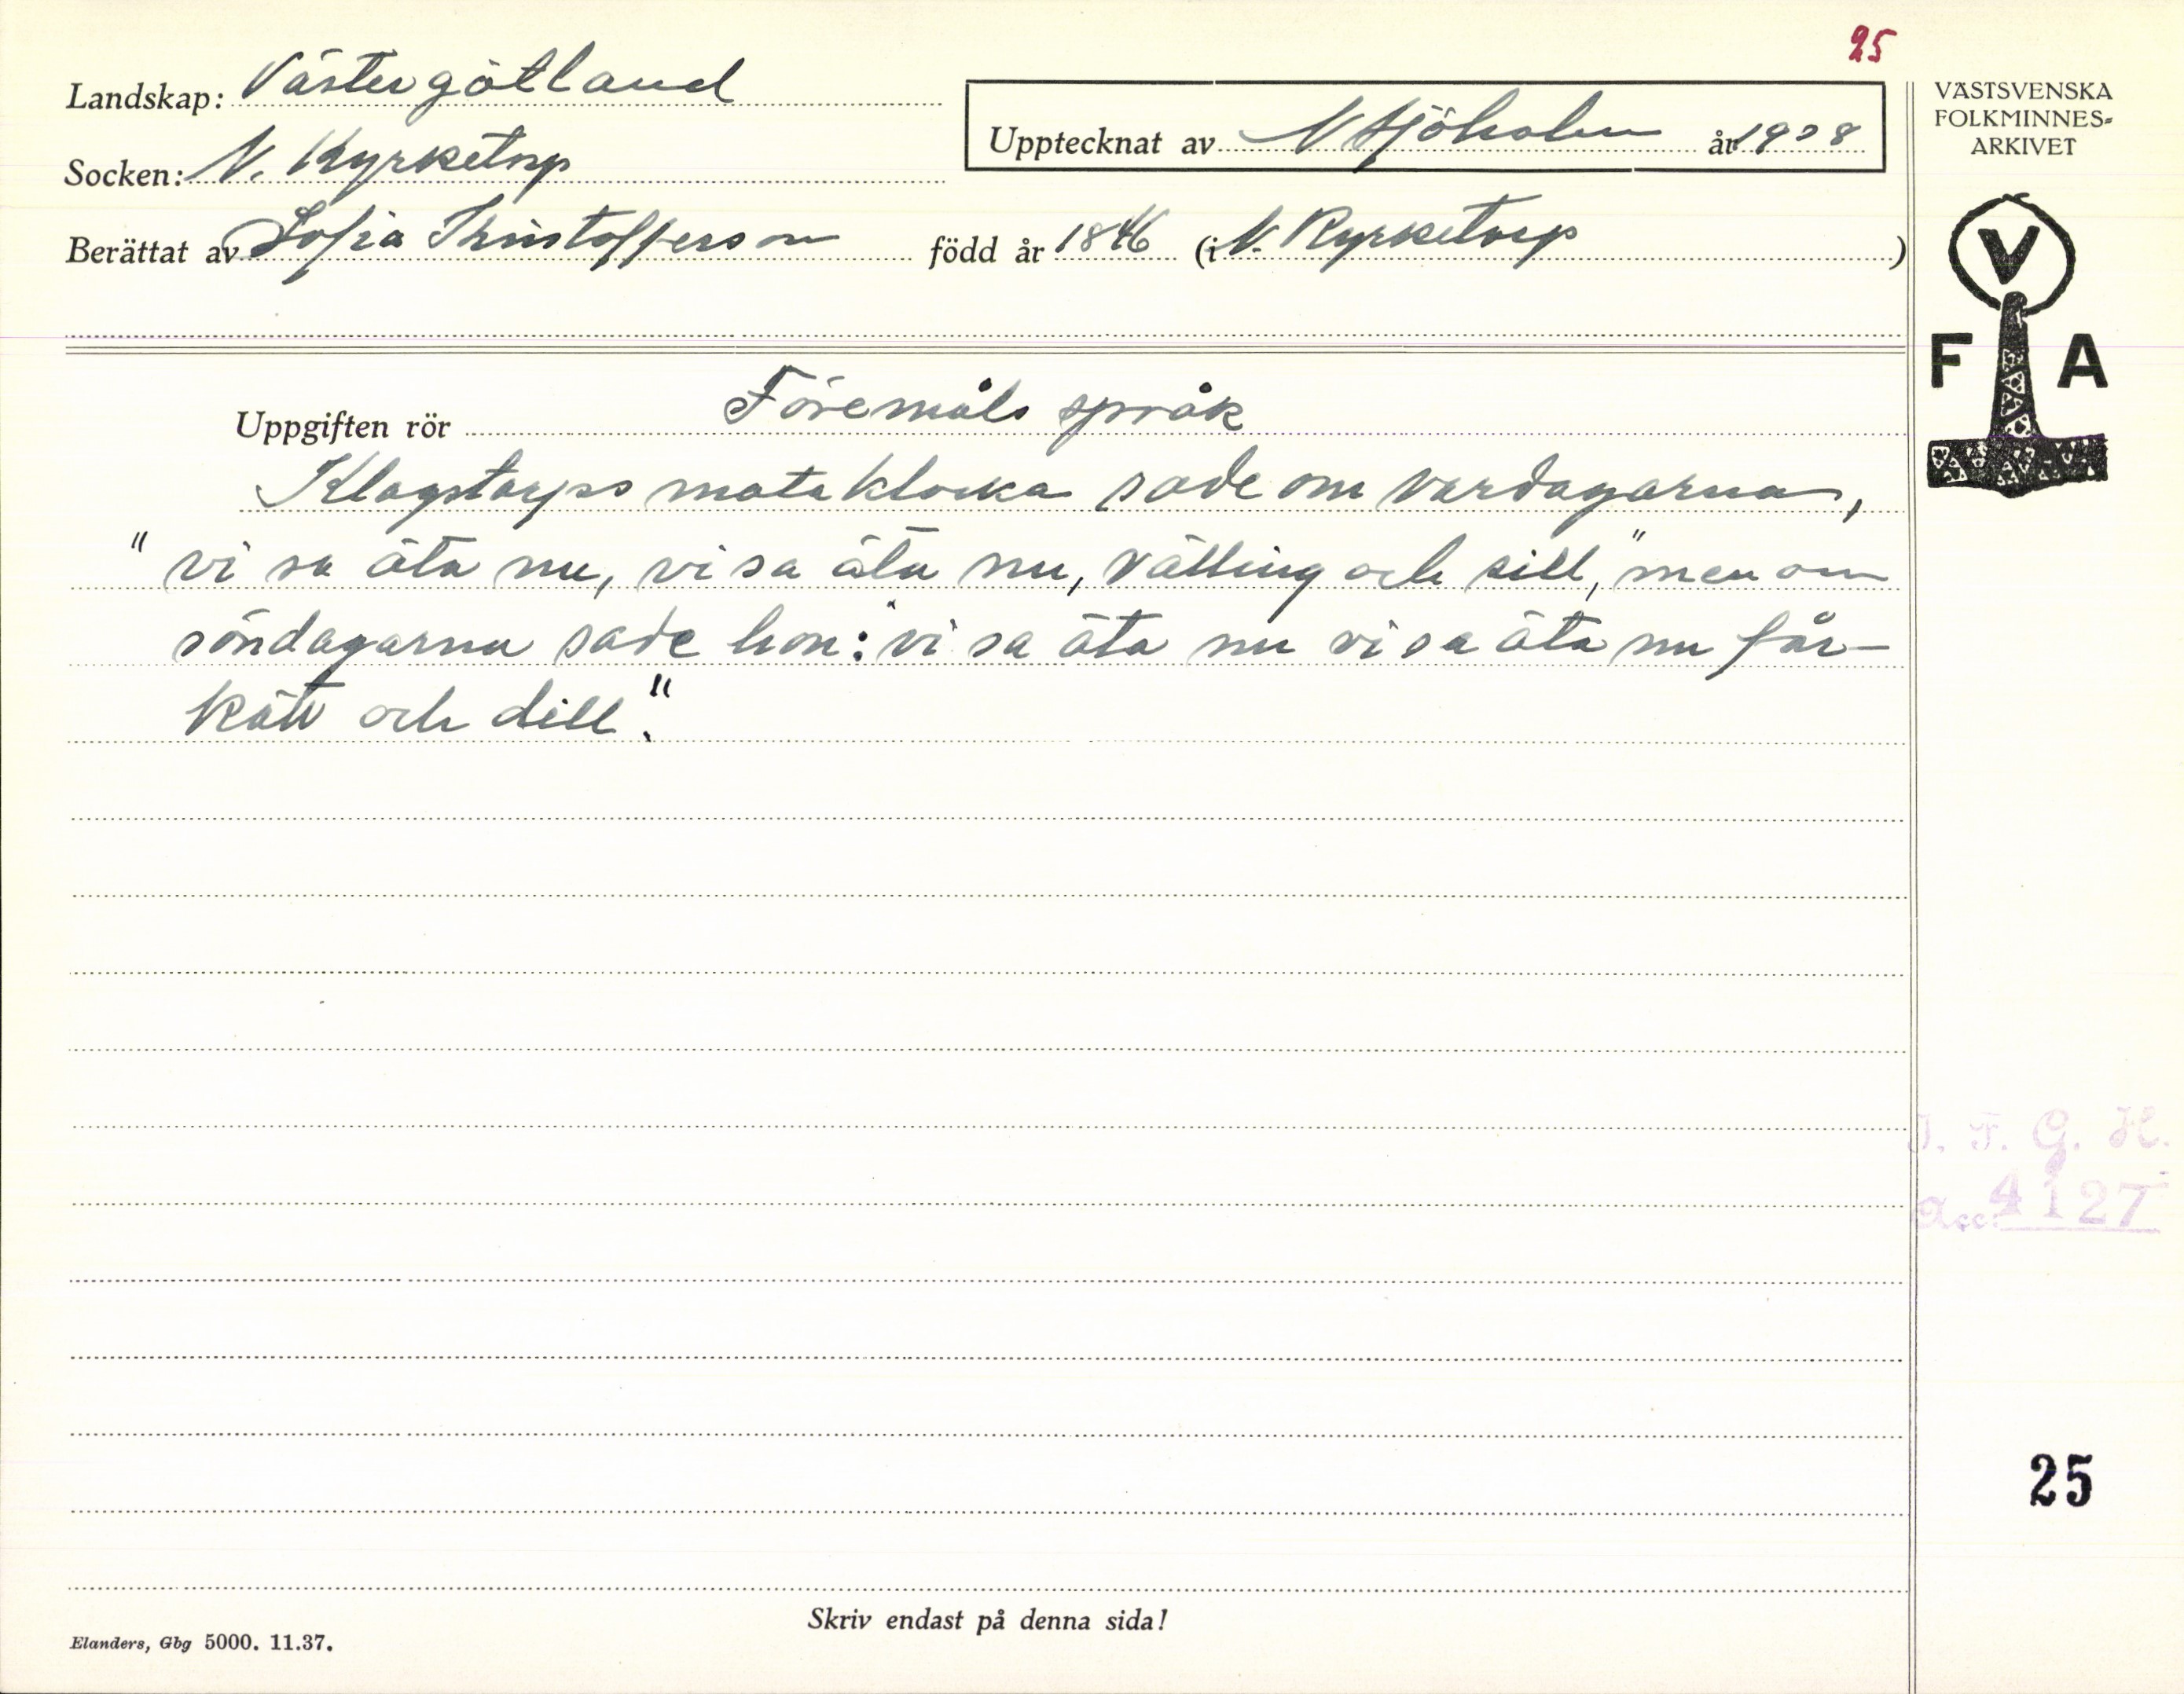 25
Landskap: Västergötland
Socken: N. Kyrketorp
Upptecknat av N Sjöholm år 1938
Berättat av Sofia Christofferson född år 1846 (i N. Kyrketorp)
VÄSTSVENSKA
FOLKMINNES-
ARKIVET
V
F A
Uppgiften rör Föremåls språk
Klagstorps mataklocka sade om vardagarna,
"vi sa äta nu, vi sa äta nu, välling och sill," men om
söndagarna sade hon: "vi sa äta nu vi sa äta nu får-
kött och dill".
I. F. G. H.
Acc: 4127
25
Skriv endast på denna sida!
Elanders, Gbg 5000. 11.37.